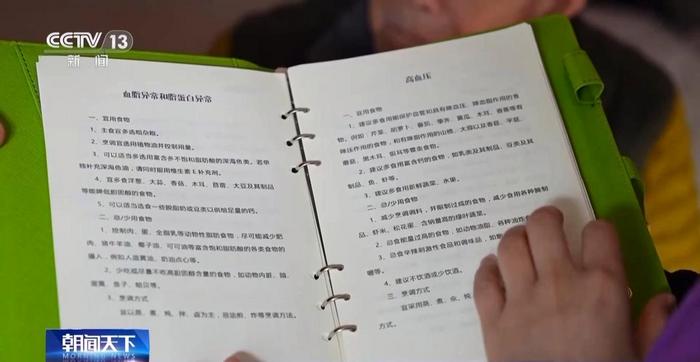 CCTV 13
新闻
血脂异常和脂蛋白异常
一、宜用食物
1、主食宜多选粗杂粮。
2、烹调宜选用植物油并控制用量。
3、可以适当多选用富含多不饱和脂肪酸的深海鱼类。若单
纯补充深海鱼油，请同时服用维生素E补充剂。
4、宜多食洋葱、大蒜、香菇、木耳、苜蓿、大豆及其制品
等能降低胆固醇的食物。
5、可以适当选食一些脱脂奶或豆类以供给足量的钙。
二、忌/少用食物
1、控制肉、蛋、全脂乳等动物性脂肪食物，尽可能减少肥
肉、猪牛羊油、椰子油、可可油等富含饱和脂肪酸的各类食物的
摄入，例如人造黄油、奶油点心等。
2、少吃或尽量不吃高胆固醇含量的食物，如动物内脏、脑、
蛋黄、鱼子、蛤贝等。
3、烹调方式
宜以蒸、煮、炖、拌、卤为主，忌油煎、炸等烹调方法。
高血压
一、宜用食物
1、建议多食用能保护血管和具有降血压、降血脂作用的食
物。例如，芹菜、胡萝卜、番茄、荸荠、黄瓜、木耳、香蕉等有
降压作用的食物，和有降脂作用的山楂、大蒜以及香菇、平菇、
蘑菇、黑木耳、银耳等蕈类食物。
2、建议多食用富含钙的食物，如乳类及其制品、豆类及其
制品、鱼、虾等。
3、建议多食用新鲜蔬菜、水果。
二、忌/少用食物
1、减少烹调调料，并限制过咸的食物，减少食用各种腌制
品、虾米、松花蛋、含钠量高的绿叶蔬菜。
2、忌食能量过高的食物，如动物油脂、各种油炸
3、忌食辛辣刺激性食品和调味品，如
咖等。
4、建议不饮酒或少饮酒。
三、烹调方式
宜采用蒸、煮、汆、炖
方式。
朝闻天下
MORNING NEWS